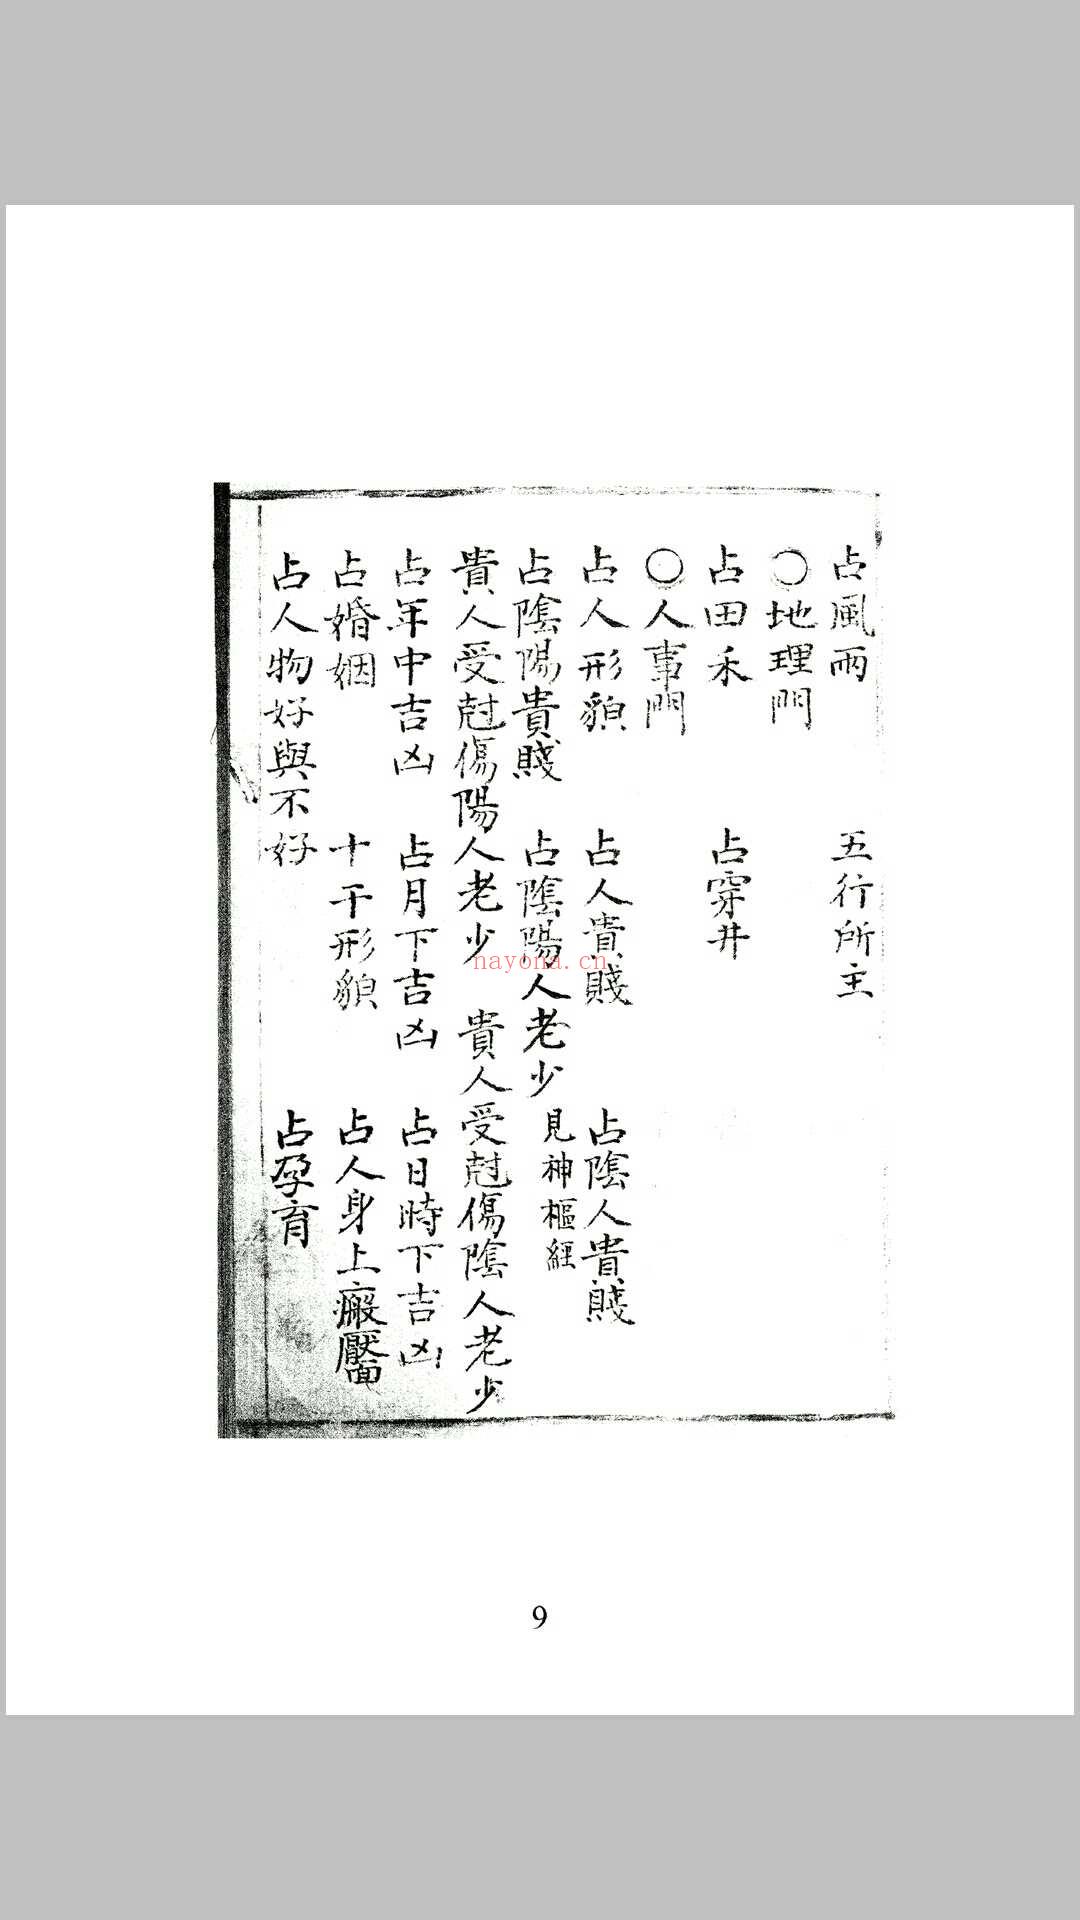 占風雨　五行所主
〇地理門
占田禾　占穿井
〇人事門
占人形貌　占人貴賤　占陰人貴賤
占陰陽貴賤　占陰陽人老少　見神樞經
貴人受尅傷陽人老少　貴人受尅傷陰人老少
占年中吉凶　占月下吉凶　占日時下吉凶
占婚姻　十干形貌　占人身上瘢靨
占人物好與不好　占孕育
nayona.cn
9